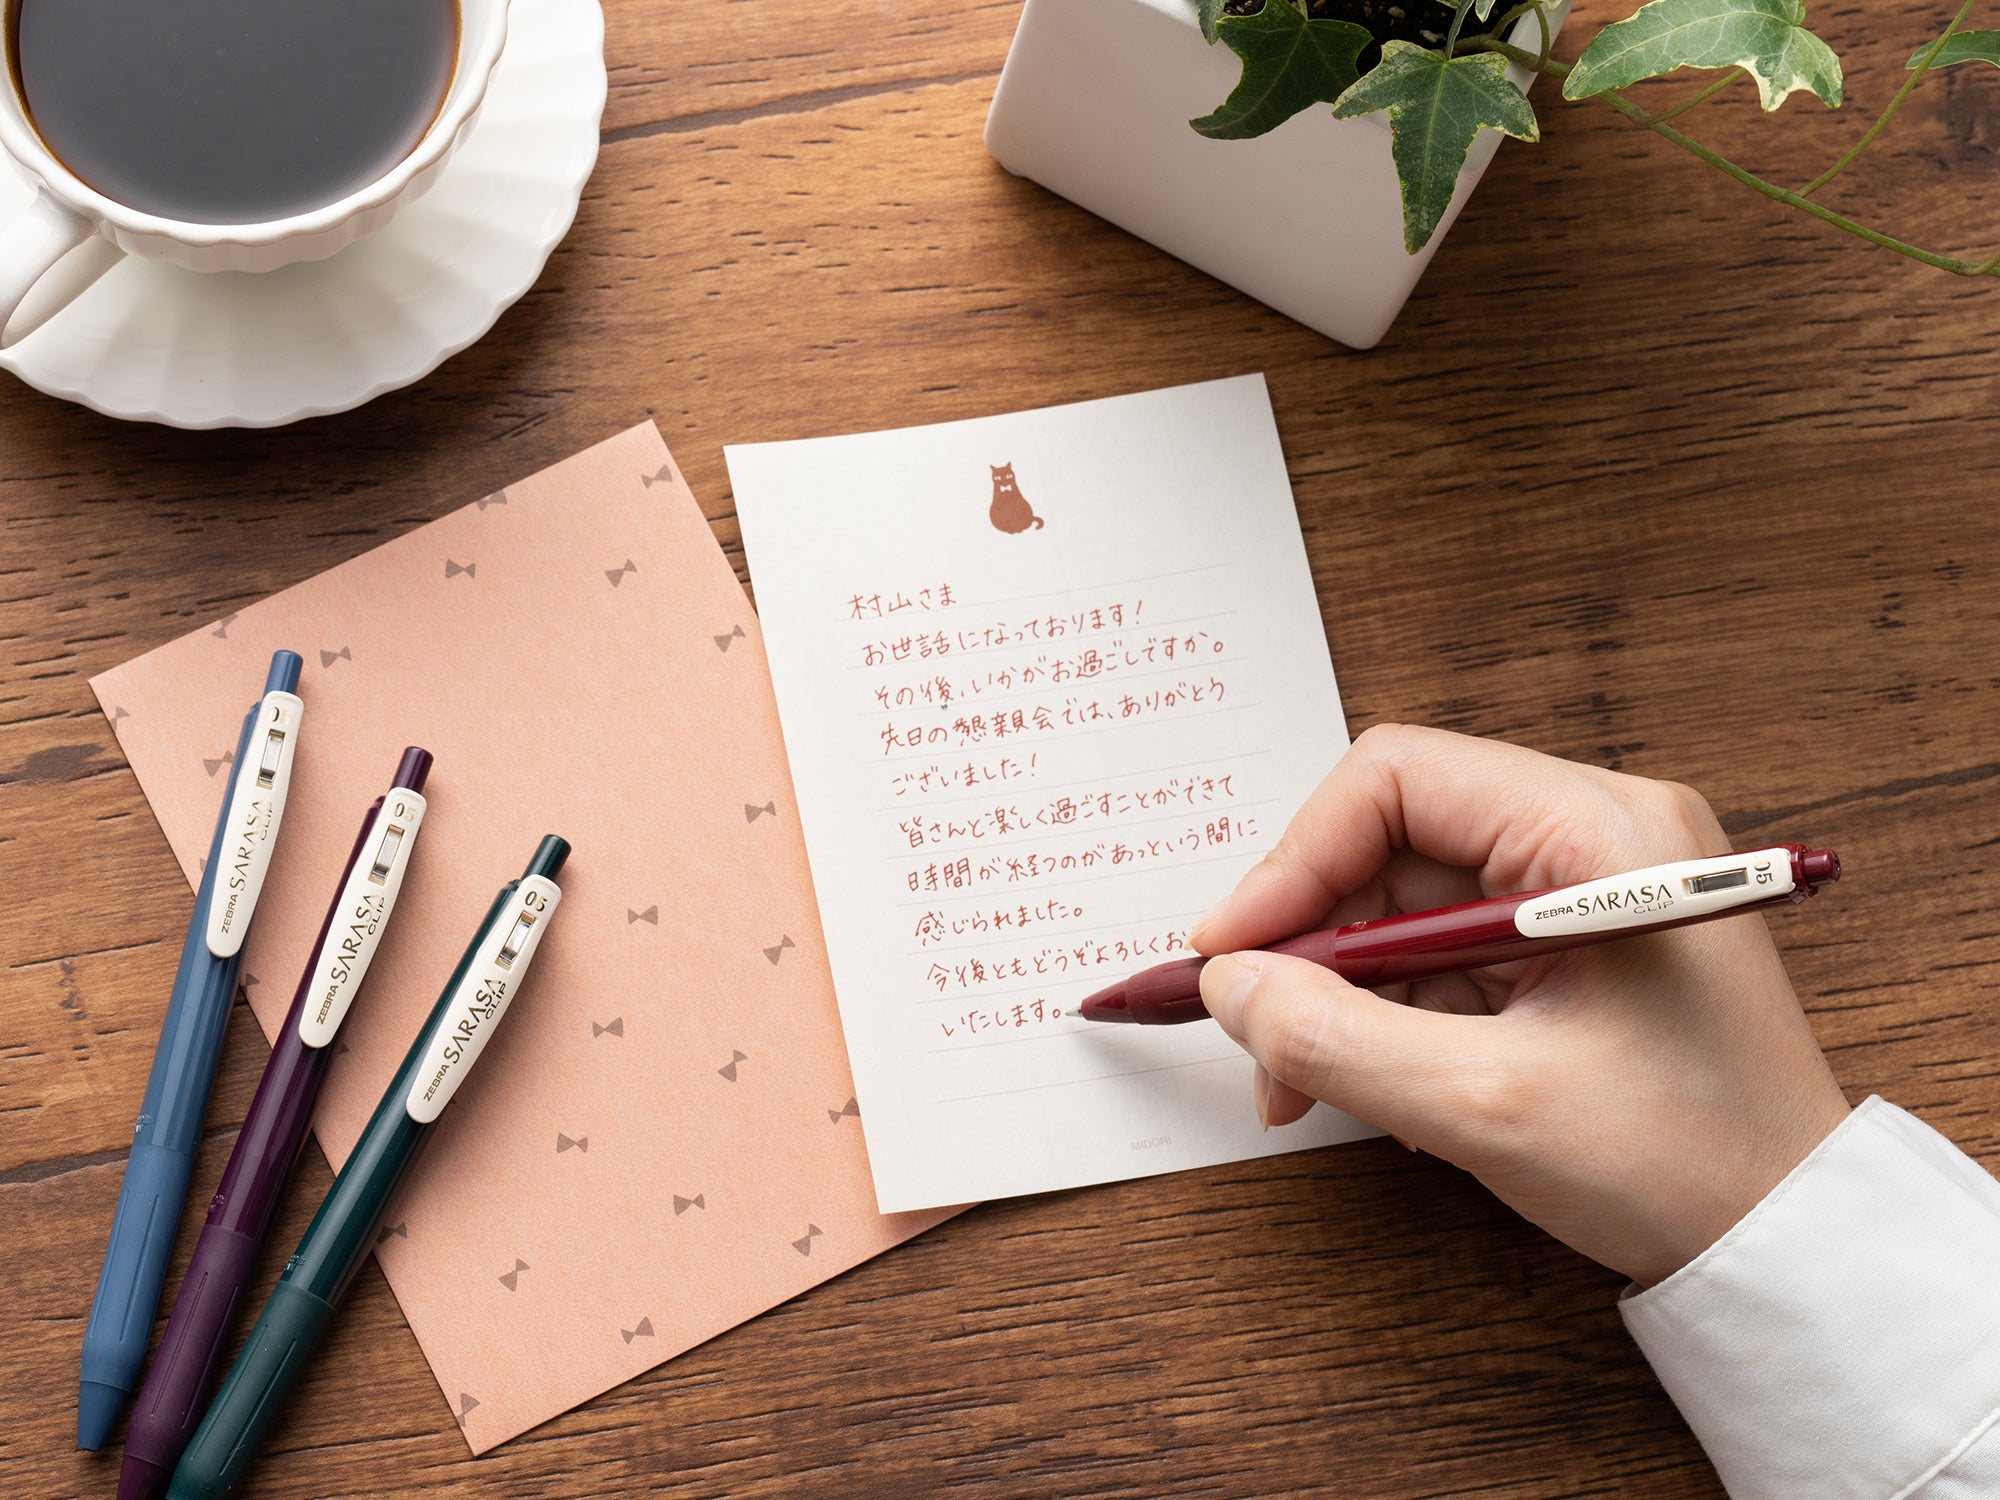 村山さま
お世話になっております！
その後、いかがお過ごしですか。
先日の懇親会では、ありがとう
ございました！
皆さんと楽しく過ごすことができて
時間が経つのがあっという間に
感じられました。
今後ともどうぞよろしくお
いたします。
MIDORI
05
ZEBRA SARASA CLIP
05
ZEBRA SARASA CLIP
05
ZEBRA SARASA CLIP
ZEBRA SARASA CLIP 05